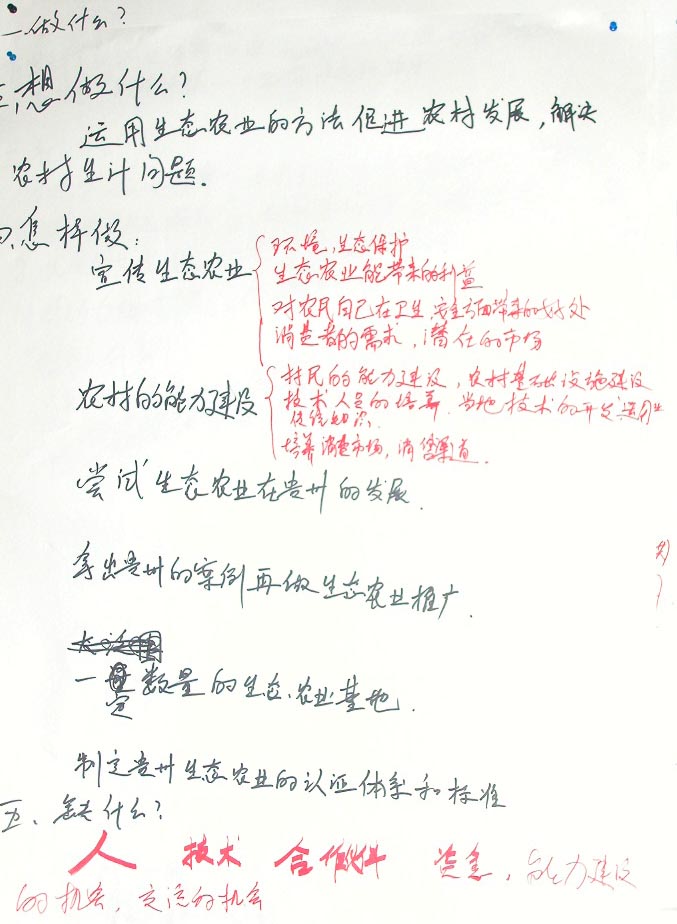 一做什么?
三.想做什么?
运用生态农业的方法促进农村发展,解决
农村生计问题.
四.怎样做:
宣传生态农业
环境,生态保护
生态农业能带来的利益
对农民自己在卫生,安全方面带来的好处
消费者的需求,潜在的市场
农村的能力建设
村民的能力建设,农村基础设施建设
技术人员的培养.当地技术的开发运用
传统知识.
培养消费市场,消售渠道.
尝试生态农业在贵州的发展.
拿出贵州的案例再做生态农业推广.
一定数量的生态农业基地.
制定贵州生态农业的认证体系和标准
五、缺什么?
人 技术 合作伙伴 资金,能力建设
的机会,交流的机会